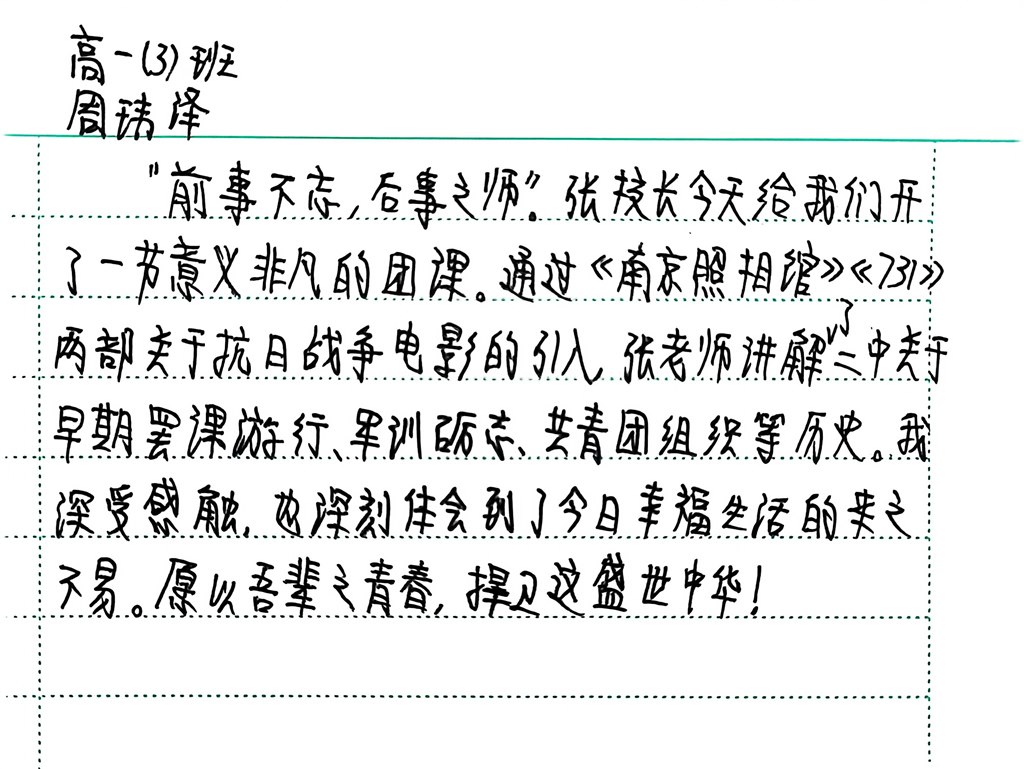 高一(3)班
周玮泽
"前事不忘,后事之师"。张校长今天给我们开
了一节意义非凡的团课。通过《南京照相馆》《731》
两部关于抗日战争电影的引入,张老师讲解了二中关于
早期罢课游行、军训砺志、共青团组织等历史。我
深受感触,也深刻体会到了今日幸福生活的来之
不易。愿以吾辈之青春,捍卫这盛世中华!